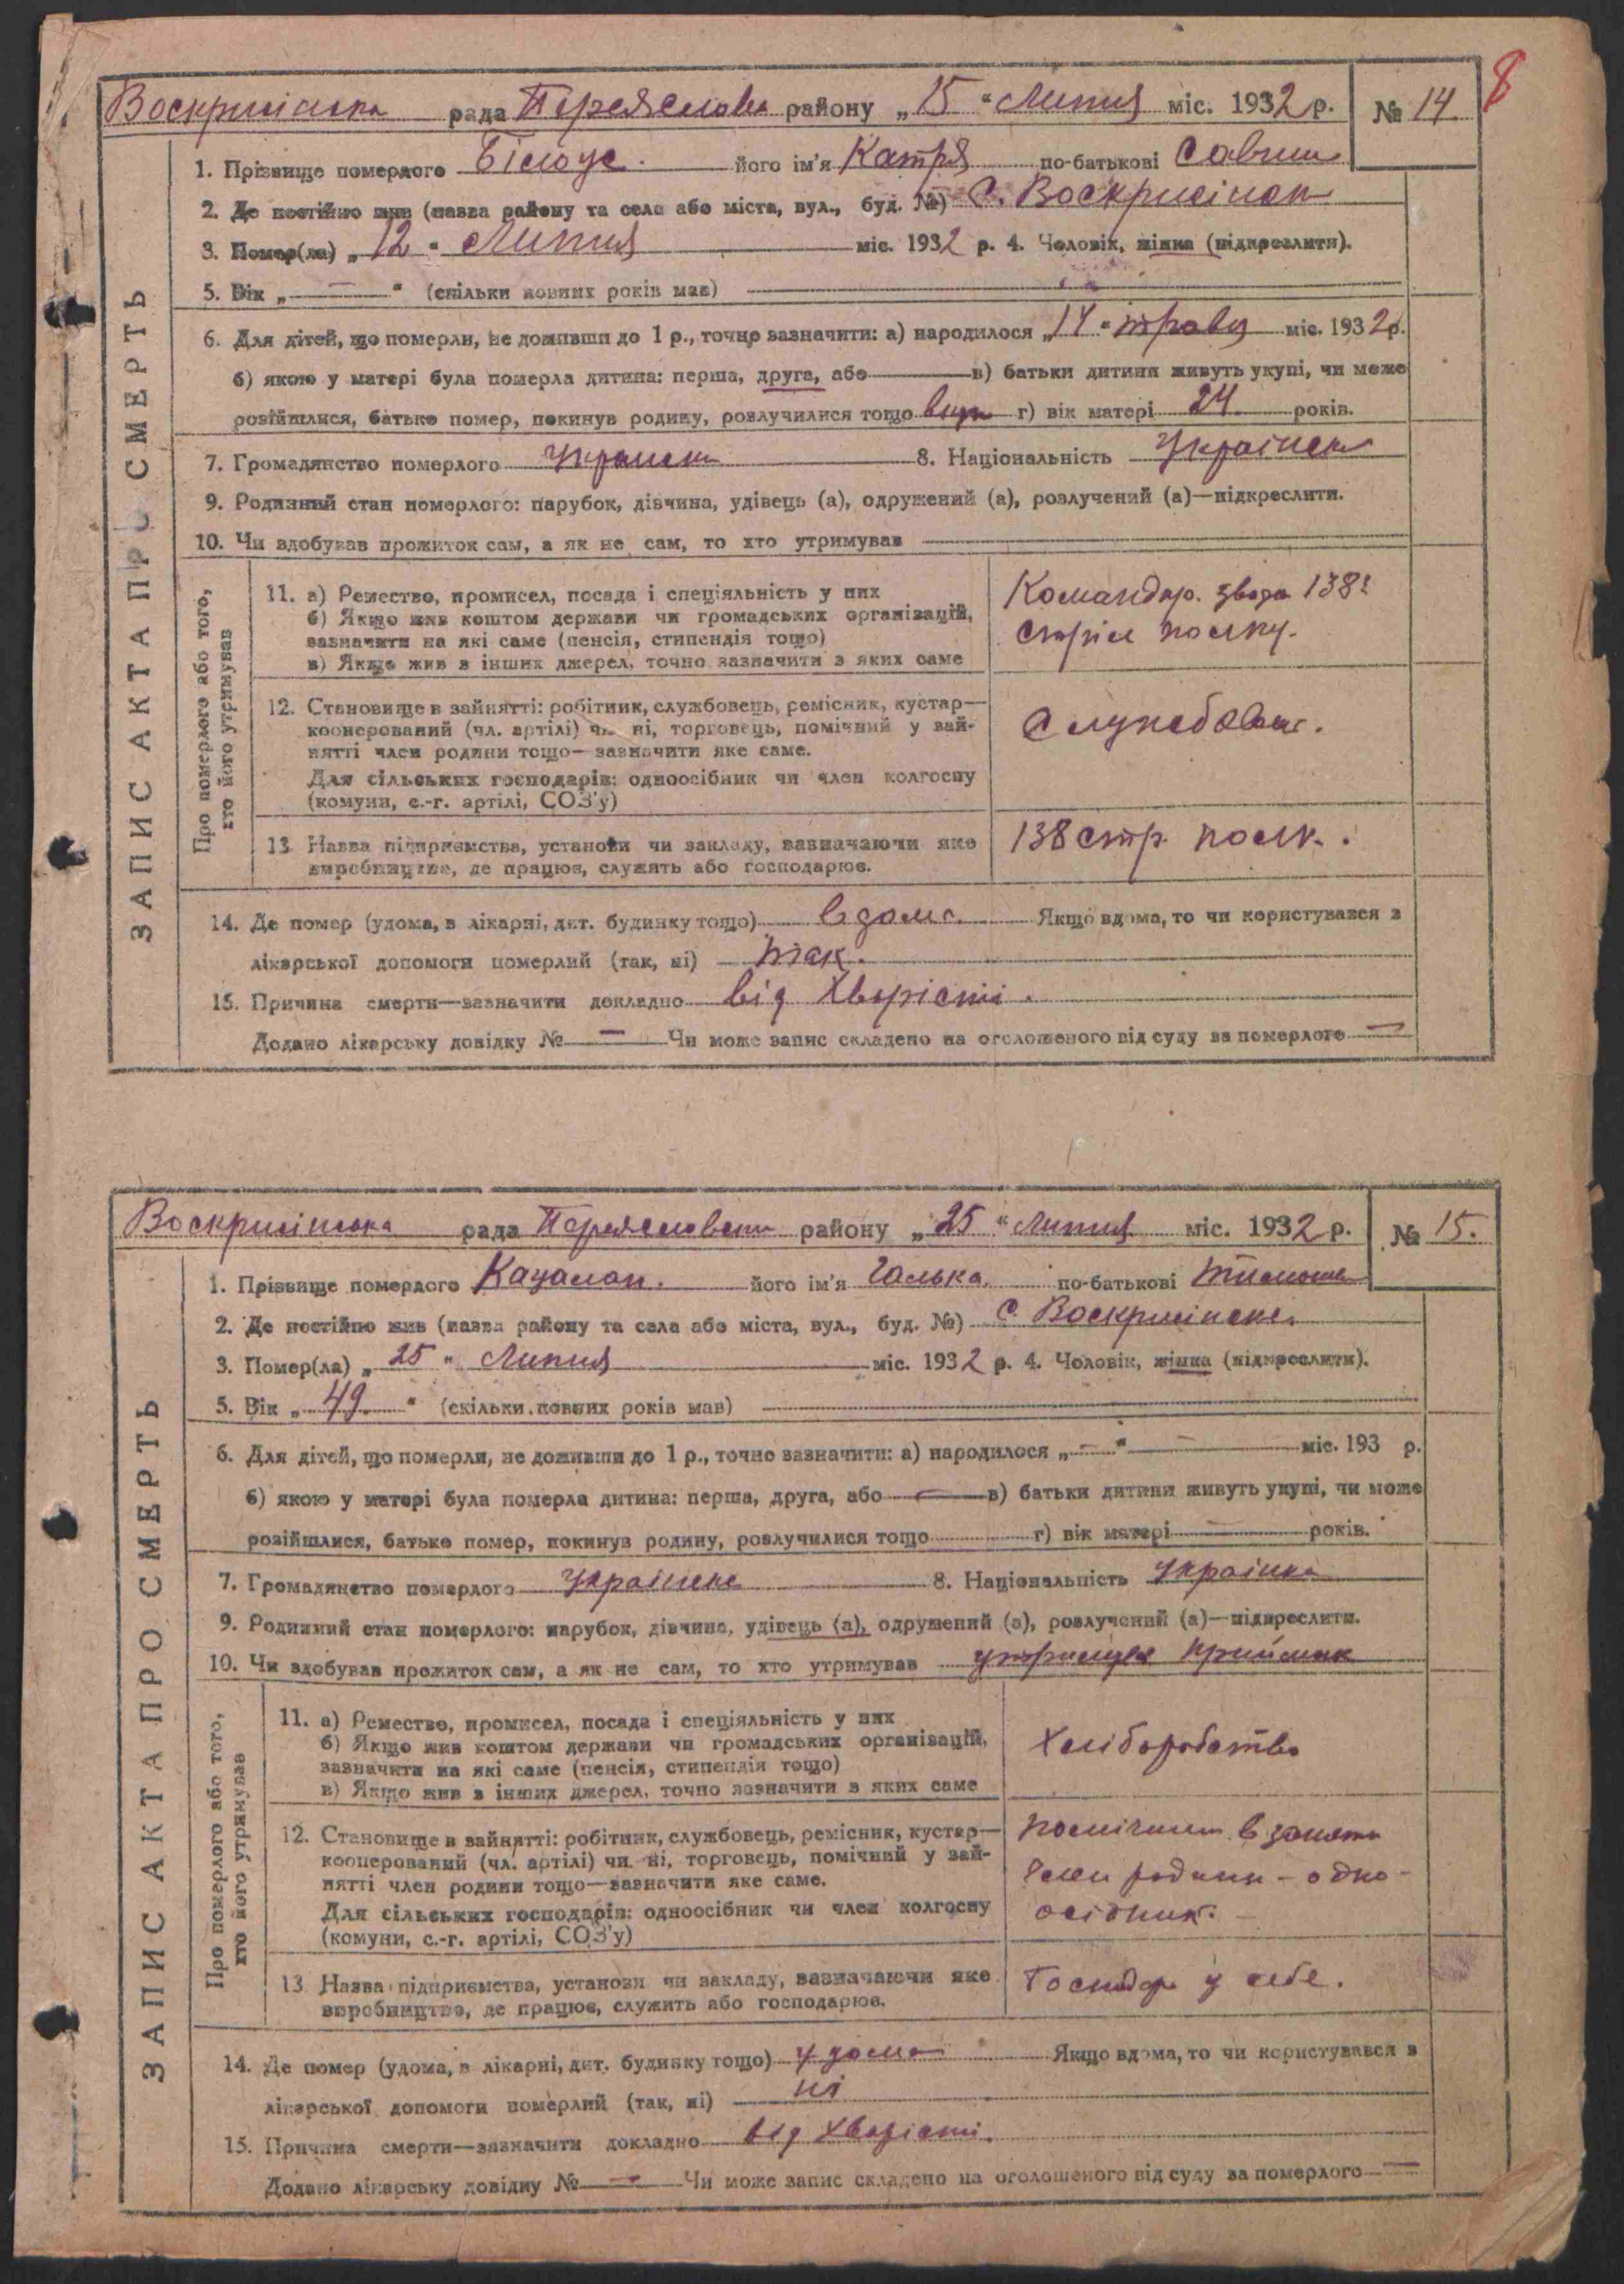 8
Воскрисінська рада Переяслова району „15“ Липня міс. 1932 р. № 14.
ЗАПИС АКТА ПРО СМЕРТЬ
1. Прізвище померлого Білоус. його ім'я Катря по-батькові Савин
2. Де постійно жив (назва району та села або міста, вул., буд. №) С. Воскрисінск
3. Помер(ла) „12“ Липня міс. 1932 р. 4. Чоловік, жінка (підкреслити).
5. Вік „—“ (скільки повних років мав)
6. Для дітей, що померли, не доживши до 1 р., точно зазначити: а) народилося „14“ травня міс. 1932 р.
б) якою у матері була померла дитина: перша, друга, або — в) батьки дитини живуть укупі, чи може
розійшлися, батько помер, покинув родину, розлучилися тощо вкупі г) вік матері 24 років.
7. Громадянство померлого Українськ 8. Національність Українськ
9. Родинний стан померлого: парубок, дівчина, удівець (а), одружений (а), розлучений (а)—підкреслити.
10. Чи здобував прожиток сам, а як не сам, то хто утримував
Про померлого або того,
хто його утримував
11. а) Ремество, промисел, посада і спеціяльність у них
б) Якщо жив коштом держави чи громадських організацій,
зазначити на які саме (пенсія, стипендія тощо)
в) Якщо жив з інших джерел, точно зазначити з яких саме
Командир. звода 138
Стріл полку.
12. Становище в зайнятті: робітник, службовець, ремісник, кустар—
кооперований (чл. артілі) чи ні, торговець, помічний у зай-
нятті член родини тощо—зазначити яке саме.
Для сільських господарів: одноосібник чи член колгоспу
(комуни, с.-г. артілі, СОЗ'у)
Службовец.
13. Назва підприємства, установи чи закладу, зазначаючи яке
виробництво, де працює, служить або господарює.
138 стр. полк.
14. Де помер (удома, в лікарні, дит. будинку тощо) вдома Якщо вдома, то чи користувався з
лікарської допомоги померлий (так, ні) так.
15. Причина смерти—зазначити докладно від хворісті.
Додано лікарську довідку № — Чи може запис складено на оголошеного від суду за померлого —
Воскрисінська рада Переяславськ району „25“ Липня міс. 1932 р. № 15.
ЗАПИС АКТА ПРО СМЕРТЬ
1. Прізвище померлого Кацалап. його ім'я Галька по-батькові Тимош
2. Де постійно жив (назва району та села або міста, вул., буд. №) С. Воскрисінське
3. Помер(ла) „25“ Липня міс. 1932 р. 4. Чоловік, жінка (підкреслити).
5. Вік „49.“ (скільки повних років мав)
6. Для дітей, що померли, не доживши до 1 р., точно зазначити: а) народилося „—“ — міс. 193 р.
б) якою у матері була померла дитина: перша, друга, або — в) батьки дитини живуть укупі, чи може
розійшлися, батько помер, покинув родину, розлучилися тощо г) вік матері — років.
7. Громадянство померлого Українське 8. Національність Українка
9. Родинний стан померлого: парубок, дівчина, удівець (а), одружений (а), розлучений (а)—підкреслити.
10. Чи здобував прожиток сам, а як не сам, то хто утримував утримував приймак
Про померлого або того,
хто його утримував
11. а) Ремество, промисел, посада і спеціяльність у них
б) Якщо жив коштом держави чи громадських організацій,
зазначити на які саме (пенсія, стипендія тощо)
в) Якщо жив з інших джерел, точно зазначити з яких саме
Хліборобство
12. Становище в зайнятті: робітник, службовець, ремісник, кустар—
кооперований (чл. артілі) чи ні, торговець, помічний у зай-
нятті член родини тощо—зазначити яке саме.
Для сільських господарів: одноосібник чи член колгоспу
(комуни, с.-г. артілі, СОЗ'у)
помічник в занятті
член родини - одно-
осібник. -
13. Назва підприємства, установи чи закладу, зазначаючи яке
виробництво, де працює, служить або господарює.
Господар у себе.
14. Де помер (удома, в лікарні, дит. будинку тощо) у дома Якщо вдома, то чи користувався з
лікарської допомоги померлий (так, ні) ні
15. Причина смерти—зазначити докладно від хворісті.
Додано лікарську довідку № — Чи може запис складено на оголошеного від суду за померлого —